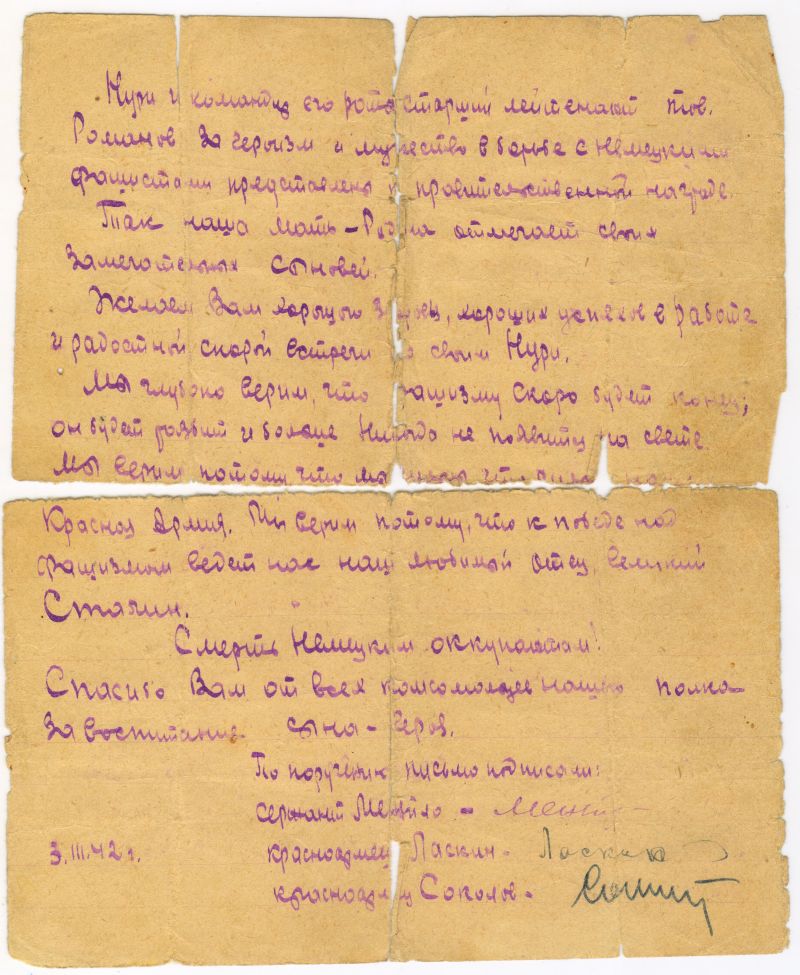 Нури и командир его роты старший лейтенант тов.
Романов за героизм и мужество в борьбе с немецкими
фашистами представлены к правительственной награде.
Так наша мать-Родина отмечает своих
замечательных сыновей.
Желаем Вам хорошего здоровья, хороших успехов в работе
и радостной скорой встречи со своим Нури.
Мы глубоко верим, что фашизму скоро будет конец;
он будет разбит и больше никогда не появится на свете.
Мы верим потому, что мы
Красная Армия. Мы верим потому, что к победе над
фашизмом ведет нас наш любимый отец, великий
Сталин.
Смерть немецким оккупантам!
Спасибо Вам от всех комсомольцев нашего полка
за воспитание сына-героя.
По поручению письмо подписали:
сержант -
красноармеец Ласкин - Ласкин
3.III.42 г.
красноармеец Соколов -